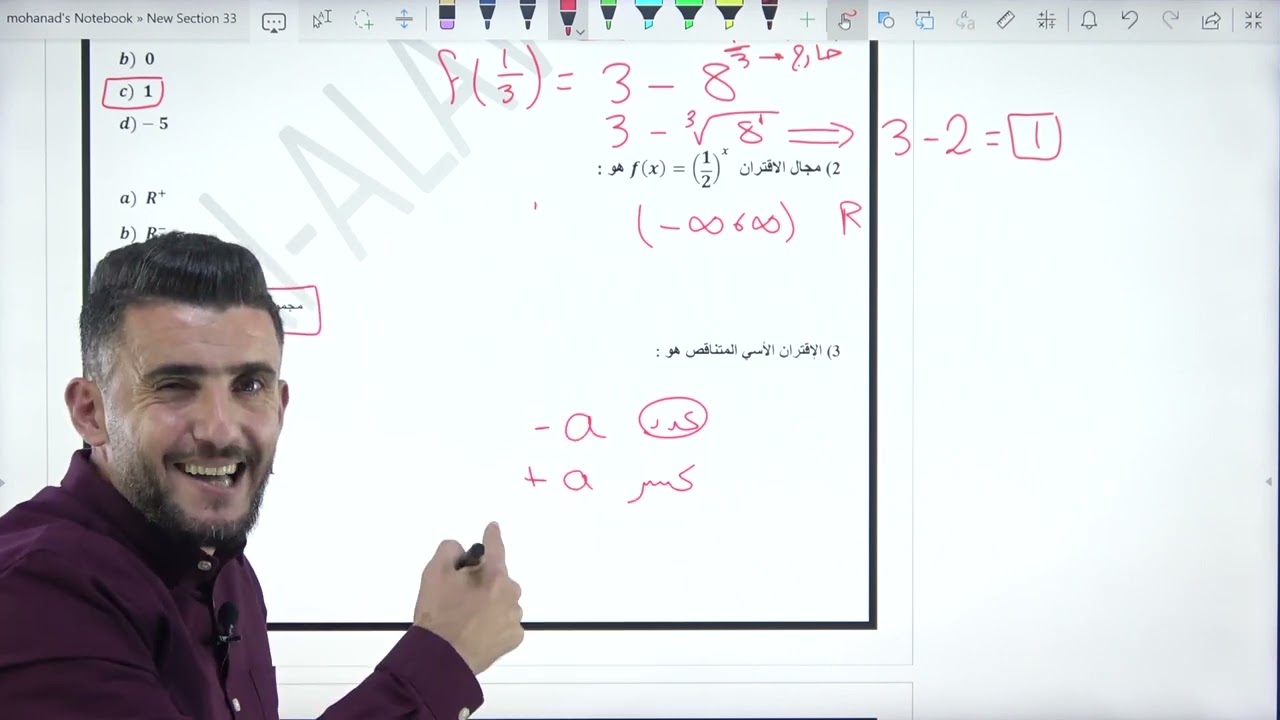 mohanad's Notebook » New Section 33
b) 0
c) 1
d) – 5
f(1/3) = 3 – 8^(1/3) → خارج
3 – ∛8¹ ⟹ 3 – 2 = 1
2) مجال الاقتران f(x) = (1/2)^x هو :
a) R⁺
(–∞ ، ∞) R
b) R⁻
3) الإقتران الأسي المتناقص هو :
– a عدد
+ a كسر